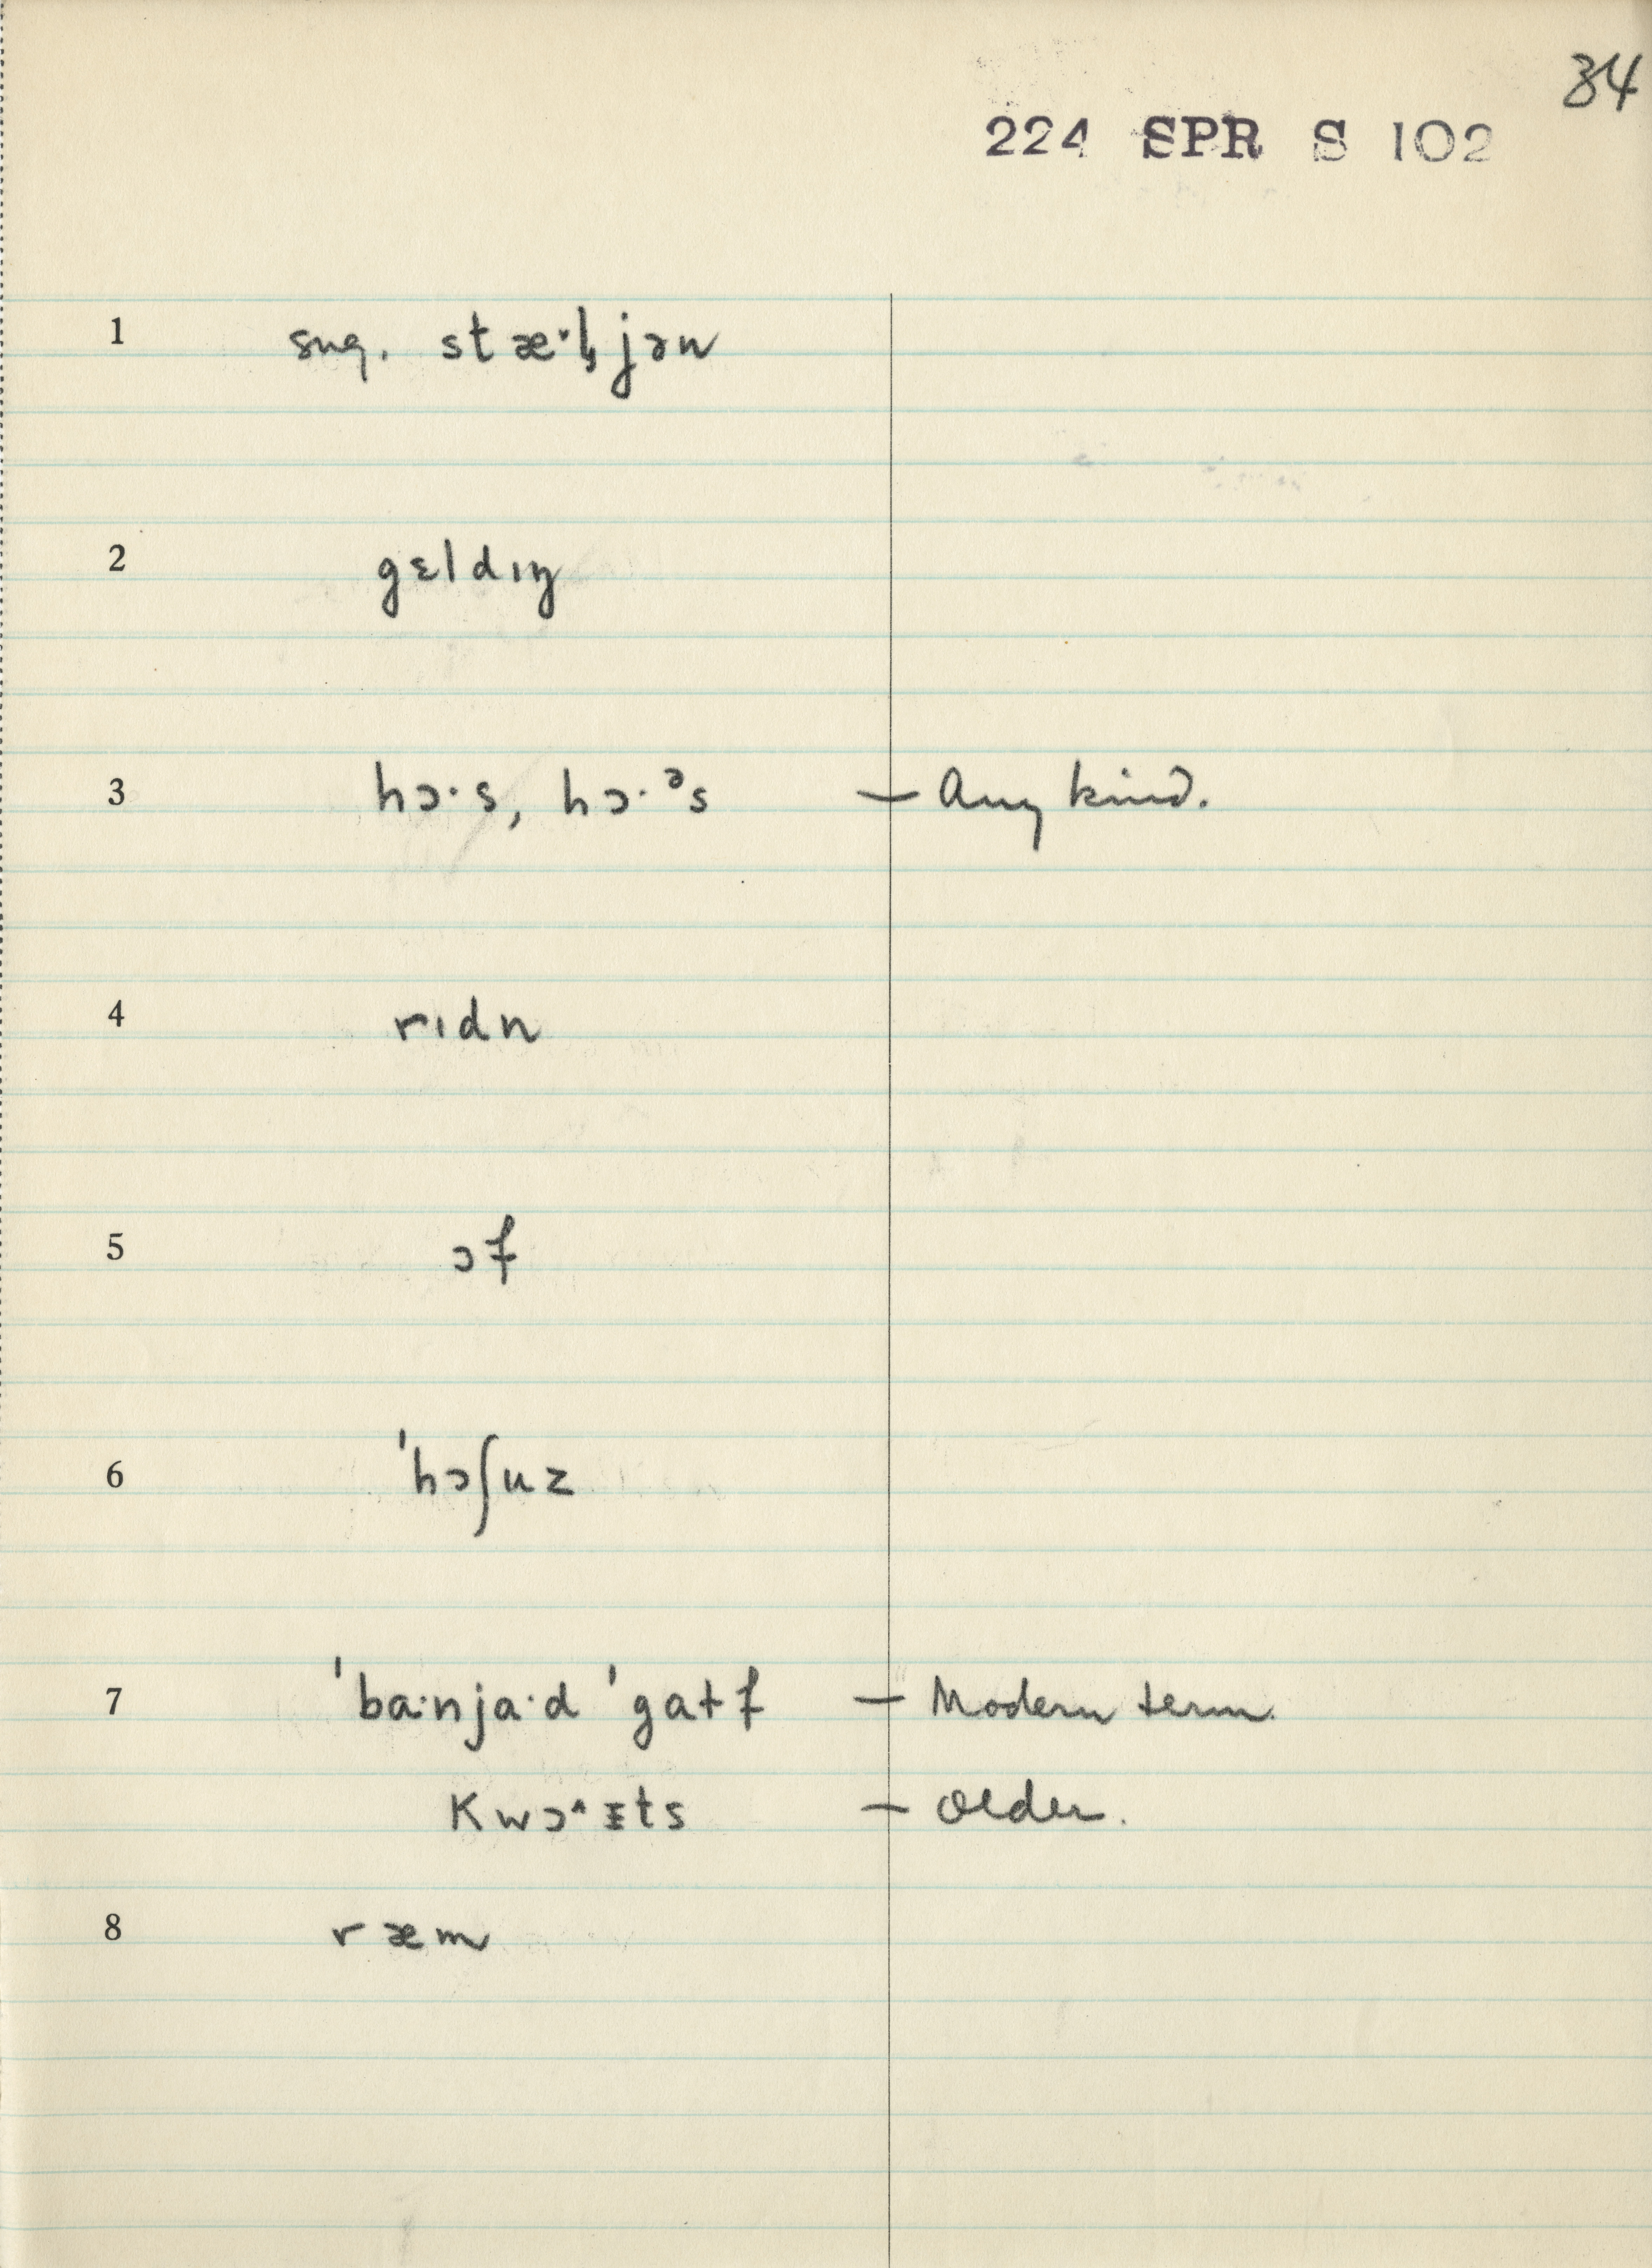 34
224 SPR S 102
1 sug. stæ·l̬jən
2 gɛldɪŋ
3 hɔ·s, hɔ·ᵊs — Any kind.
4 rɪdn
5 ɔf
6 ˈhɔʃuz
7 ˈba·nja·d ˈgatʃ — Modern term.
kwɔ˄ɪts — Older.
8 ræm